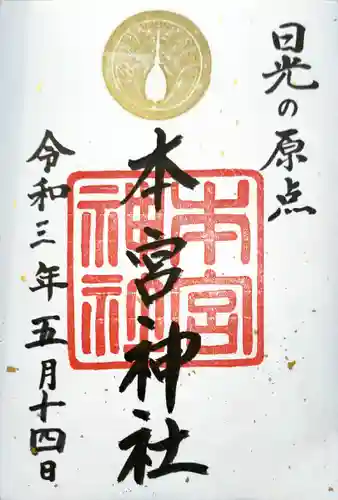 日光の原点
本宮神社
本宮
神社
令和三年五月十四日